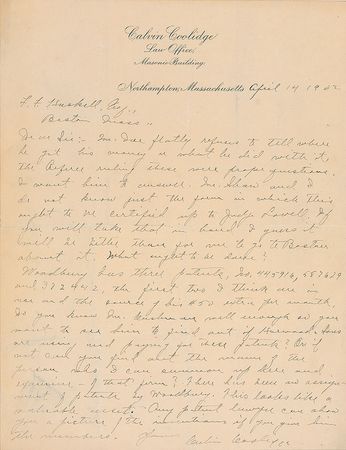 Calvin Coolidge
Law Office,
Masonic Building.
Northampton, Massachusetts April 14 190
Esq.,
Boston Mass.,
Dear Sir:- Mr. flatly refuses to tell where
he got his money or what he did with it,
the Referee ruling these were proper questions.
I want him to answer. Mr. Shaw and I
do not know just the form in which this
ought to be certified up to Judge Lowell. If
you will take that in hand I guess it
will be better than for me to go to Boston
about it. What ought to be done?
Woodbury has three patents, No. 445916, 557679
and 372442, the first two I think are in
use and the source of his $50 per month.
Do you know Mr. well enough or you
want to see him to find out if Harwood
are using and paying for these patents? Or if
not can you find out the name of the
person who I can summon up here and
of that firm? There has been an assign-
ment of patents by Woodbury. This looks like a
valuable asset. Any patent lawyer can show
you a picture of the inventions if you give him
the numbers. Yours
Calvin Coolidge